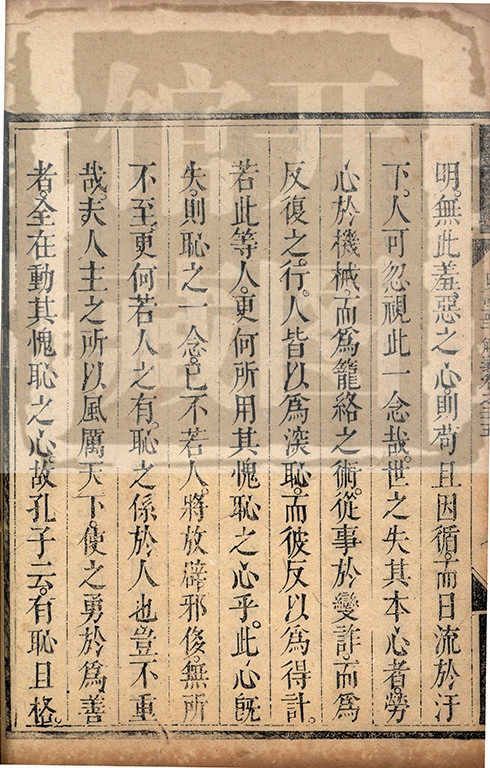 明。無此羞惡之心。則苟且因循。而日流於汙
下。人可忽視此一念哉。世之失其本心者。勞
心於機械。而爲籠絡之術。從事於變詐。而爲
反復之行。人皆以爲深恥。而彼反以爲得計。
若此等人。更何所用其愧恥之心乎。此心旣
失。則恥之一念。已不若人。將放辟邪侈。無所
不至。更何若人之有。恥之係於人也。豈不重
哉。夫人主之所以風厲天下。使之勇於爲善
者。全在動其愧恥之心。故孔子云。有恥且格。